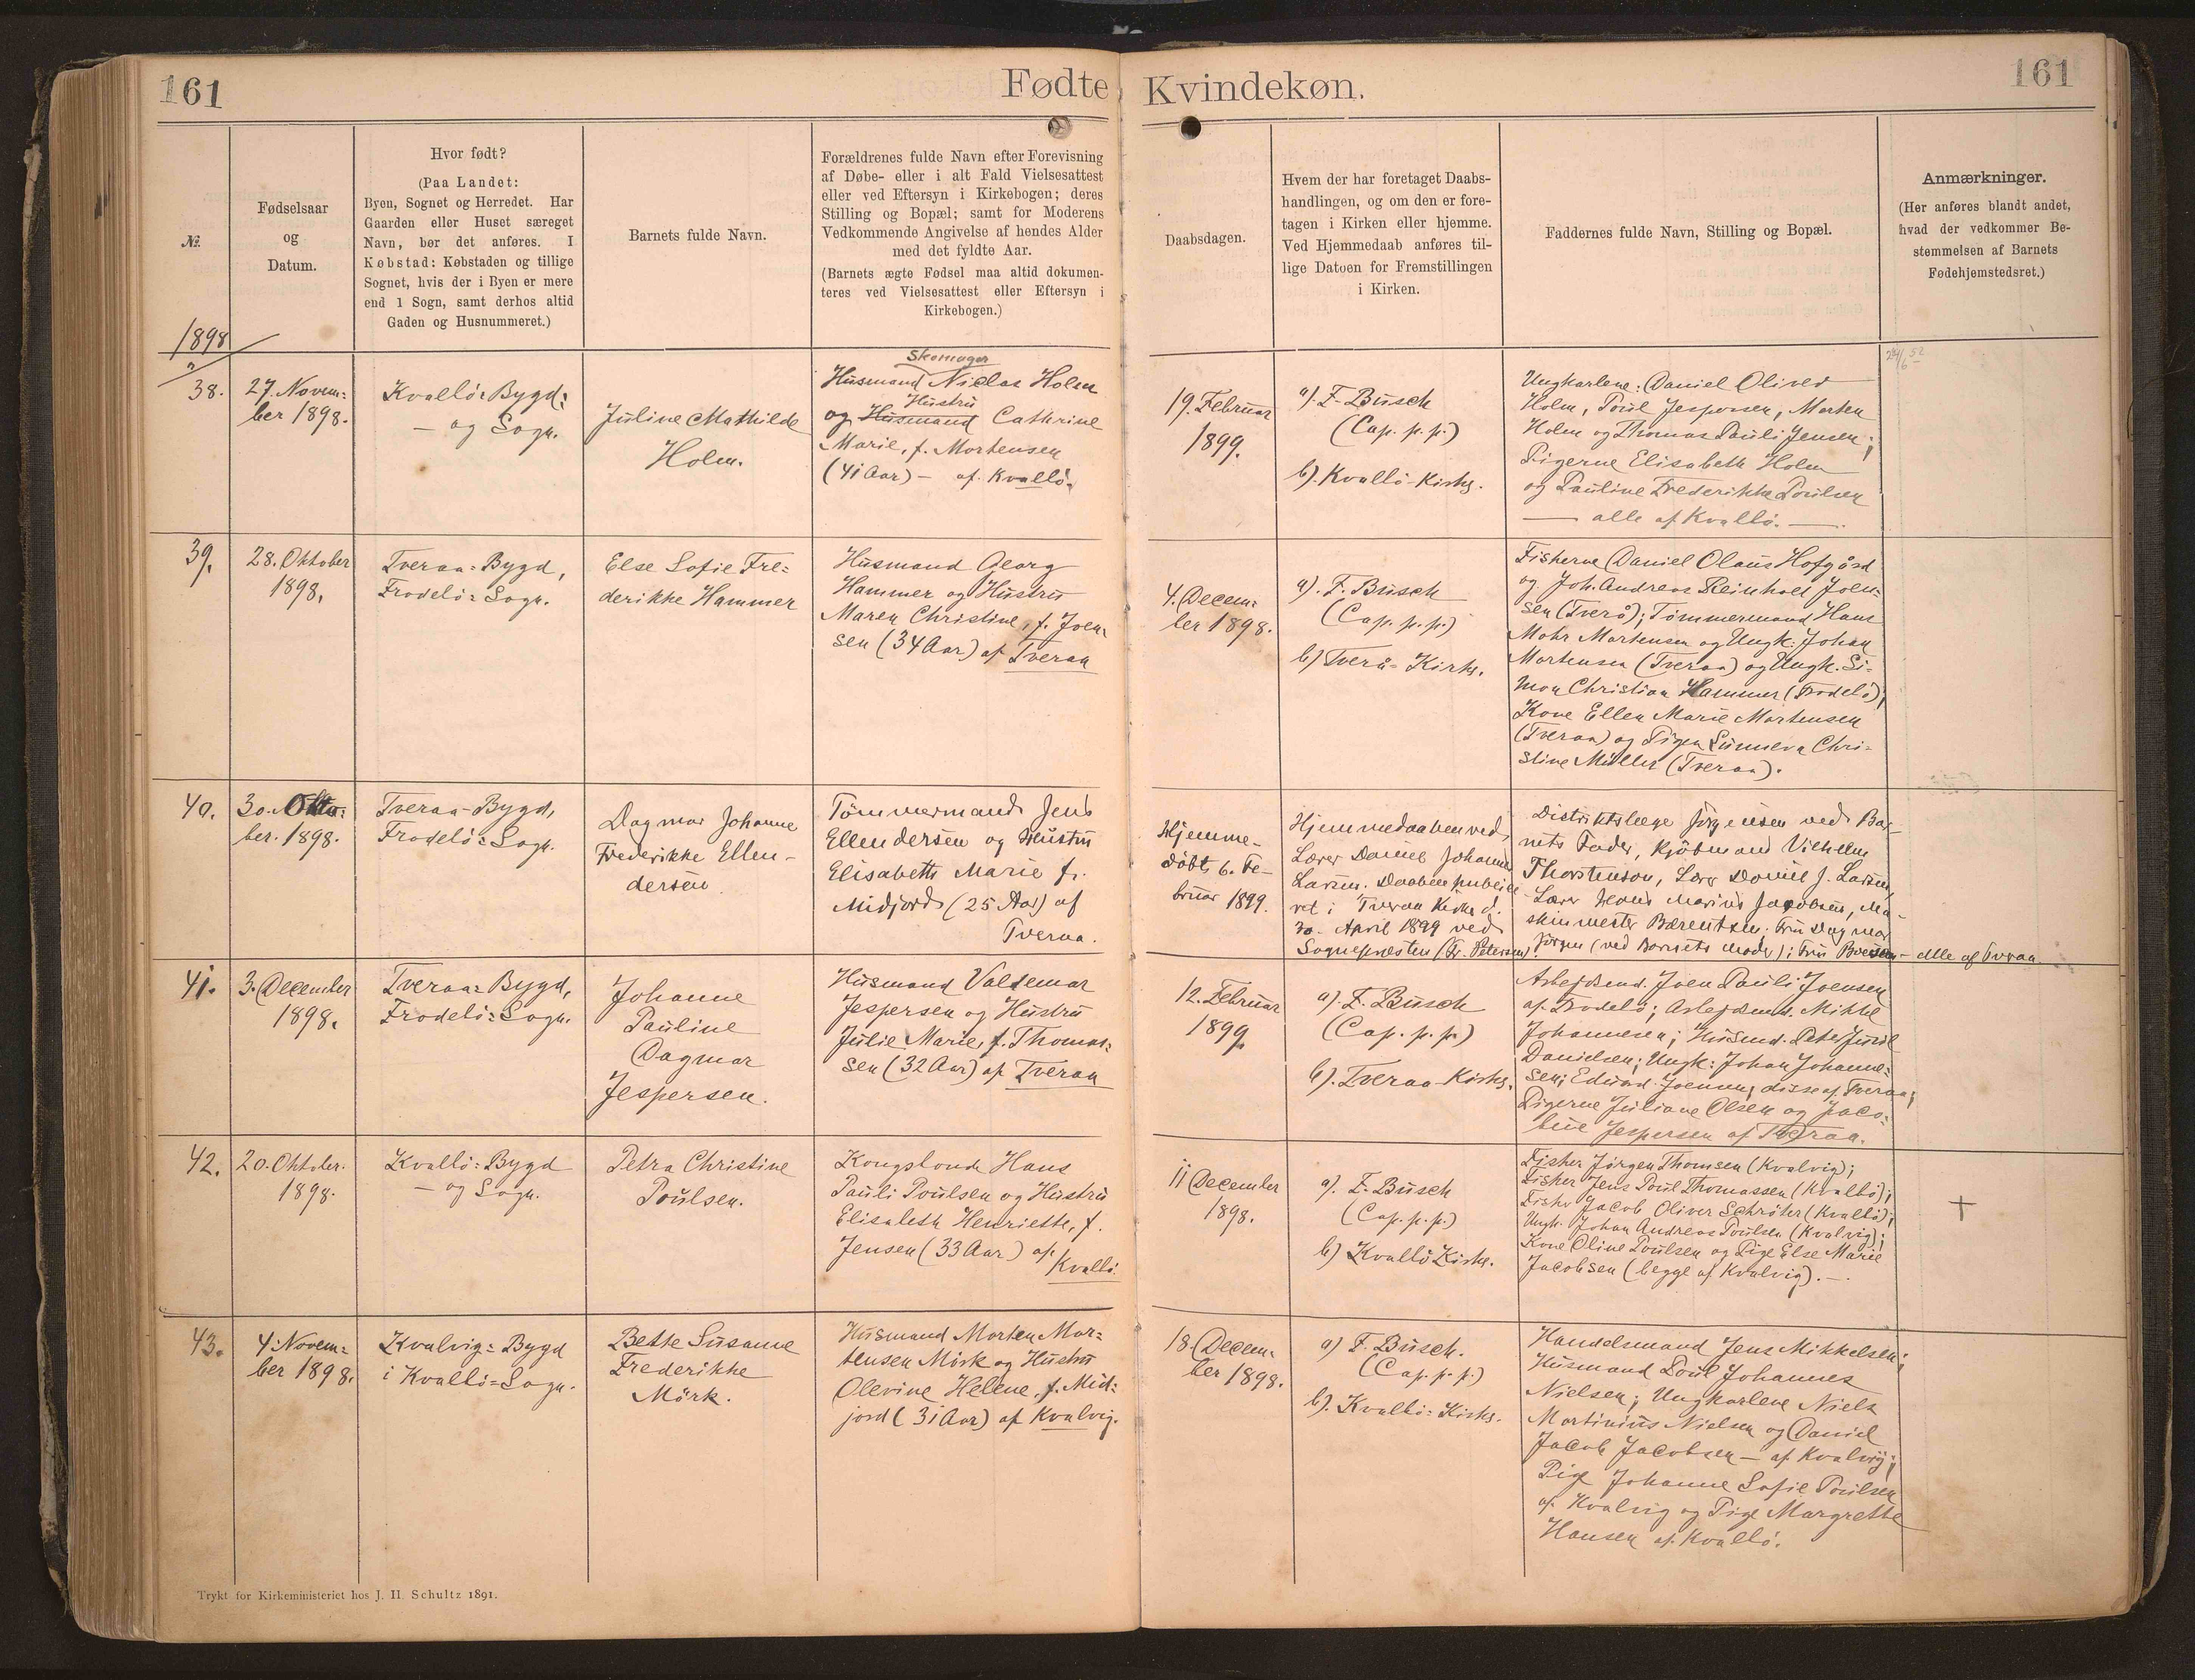 161
Fødte
Kvindekøn.
161
№.
Fødselsaar
og
Datum.
Hvor født?
(Paa Landet:
Byen, Sognet og Herredet. Har
Gaarden eller Huset særeget
Navn, bør det anføres. I
Købstad: Købstaden og tillige
Sognet, hvis der i Byen er mere
end 1 Sogn, samt derhos altid
Gaden og Husnummeret.)
Barnets fulde Navn.
Forældrenes fulde Navn efter Forevisning
af Døbe- eller i alt Fald Vielsesattest
eller ved Eftersyn i Kirkebogen; deres
Stilling og Bopæl; samt for Moderens
Vedkommende Angivelse af hendes Alder
med det fyldte Aar.
(Barnets ægte Fødsel maa altid dokumen-
teres ved Vielsesattest eller Eftersyn i
Kirkebogen.)
Daabsdagen.
Hvem der har foretaget Daabs-
handlingen, og om den er fore-
tagen i Kirken eller hjemme.
Ved Hjemmedaab anføres til-
lige Datoen for Fremstillingen
i Kirken.
Faddernes fulde Navn, Stilling og Bopæl.
Anmærkninger.
(Her anføres blandt andet,
hvad der vedkommer Be-
stemmelsen af Barnets
Fødehjemstedsret.)
1898
38.
27. Novem-
ber 1898.
Kvalbö=Bygd=
— og Sogn.
Juline Mathilde
Holm.
Skomager
Husmand Niclas Holm
Hustru
og Husmand Cathrine
Marie, f. Mortensen
(41 Aar) — af Kvalbö.
19. Februar
1899.
a). F. Busch
(Cap. p. p.)
b). Kvalbö-Kirke.
Ungkarlene: Daniel Oliver
Holm, Poul Jespersen, Morten
Holm og Thomas Pauli Jensen;
Pigerne Elisabeth Holm
og Pauline Frederikke Poulsen
— alle af Kvalbö. —
39.
28. Oktober
1898.
Tveraa=Bygd,
Frodebö=Sogn.
Else Sofie Fre=
derikke Hammer
Husmand Georg
Hammer og Hustru
Maren Christine, f. Joen-
sen (34 Aar) af Tveraa
4. Decem-
ber 1898.
a). F. Busch
(Cap. p. p.)
b) Tverå=Kirke.
Fiskerne Daniel Olaus Hofgård
og Joh. Andreas Reinholt Joen=
sen (Tverå); Tømmermand Hans
Mohr Mortensen og Ungk. Johan
Mortensen (Tveraa) og Ungk. Si-
mon Christian Hammer (Frodebö);
Kone Ellen Marie Mortensen
(Tveraa) og Pigen Sunneva Chri-
stine Müller (Tveraa).
40.
30. Okto-
ber. 1898.
Tveraa-Bygd,
Frodebö=Sogn.
Dagmar Johanne
Frederikke Ellen-
dersen.
Tömmermand Jens
Ellendersen og Hustru
Elisabeth Marie f.
Midjord (25 Aar) af
Tveraa.
Hjemme-
døbt 6. Fe-
bruar 1899.
Hjemmedaaben ved
Lærer Daniel Johannes
Larsen. Daaben publice
ret i Tveraa Kirke d.
30. April 1899 ved
Sognepresten (Fr. Petersen).
Distriktslæge Jörgensen ved Bar-
nets Fader, Kjöbmand Vilhelm
Thorstenson, Lærer Daniel J. Larsen,
Lærer Hans Marius Jacobsen, Ma-
skinmester Bærentsen. Fru Dagmar
Jörgen (ved Barnets Moder); Fru — alle af Tveraa
41.
3. December
1898.
Tveraa=Bygd,
Frodebö=Sogn.
Johanne
Pauline
Dagmar
Jespersen.
Husmand Valdemar
Jespersen og Hustru
Julie Marie, f. Thomas=
sen (32 Aar) af Tveraa
12. Februar
1899.
a). F. Busch
(Cap. p. p.)
b). Tveraa-Kirke.
Arbejdsmd. Joen Pauli Joensen
af Frodebö; Arbejdsmd. Mikkel
Johannesen; Husmd. Peter Juul
Danielsen; Ungk. Johan Johanne=
sen; Edvard Joensen, disse af Tveraa;
Pigerne Juliane Olsen og Jaco-
bine Jespersen af Tveraa.
42.
20. Oktober.
1898.
Kvalbö=Bygd
— og Sogn.
Petra Christine
Poulsen.
Kongsbonde Hans
Pauli Poulsen og Hustru
Elisabeth Henriette, f.
Jensen (33 Aar) af
Kvalbö.
11 December
1898.
a). F. Busch
(Cap. p. p.)
b) Kvalbö Kirke.
Fisker Jörgen Thomsen (Kvalvig);
Fisker Jens Poul Thomassen (Kvalbö);
Fisker Jacob Oliver Schröter (Kvalbö);
Ungk. Johan Andreas Poulsen (Kvalvig);
Kone Oline Poulsen og Pige Else Marie
Jacobsen (begge af Kvalvig). —.
+
43.
4. Novem=
ber 1898.
Kvalvig=Bygd
i Kvalbö=Sogn.
Bette Susanne
Frederikke
Mörk.
Husmand Morten Mor=
tensen Mörk og Hustru
Olevine Helene, f. Mid=
jord (31 Aar) af Kvalvig.
18. Decem-
ber 1898.
a) F. Busch.
(Cap. p. p.)
b). Kvalbö=Kirke.
Handelsmand Jens Mikkelsen;
Husmand Poul Johannes
Nielsen; Ungkarlene Niels
Martinius Nielsen og Daniel
Jacob Jacobsen — af Kvalvig;
Pige Johanne Sofie Poulsen
af Kvalvig og Pige Margrethe
Hansen af Kvalbö.
Trykt for Kirkeministeriet hos J. H. Schultz 1891.